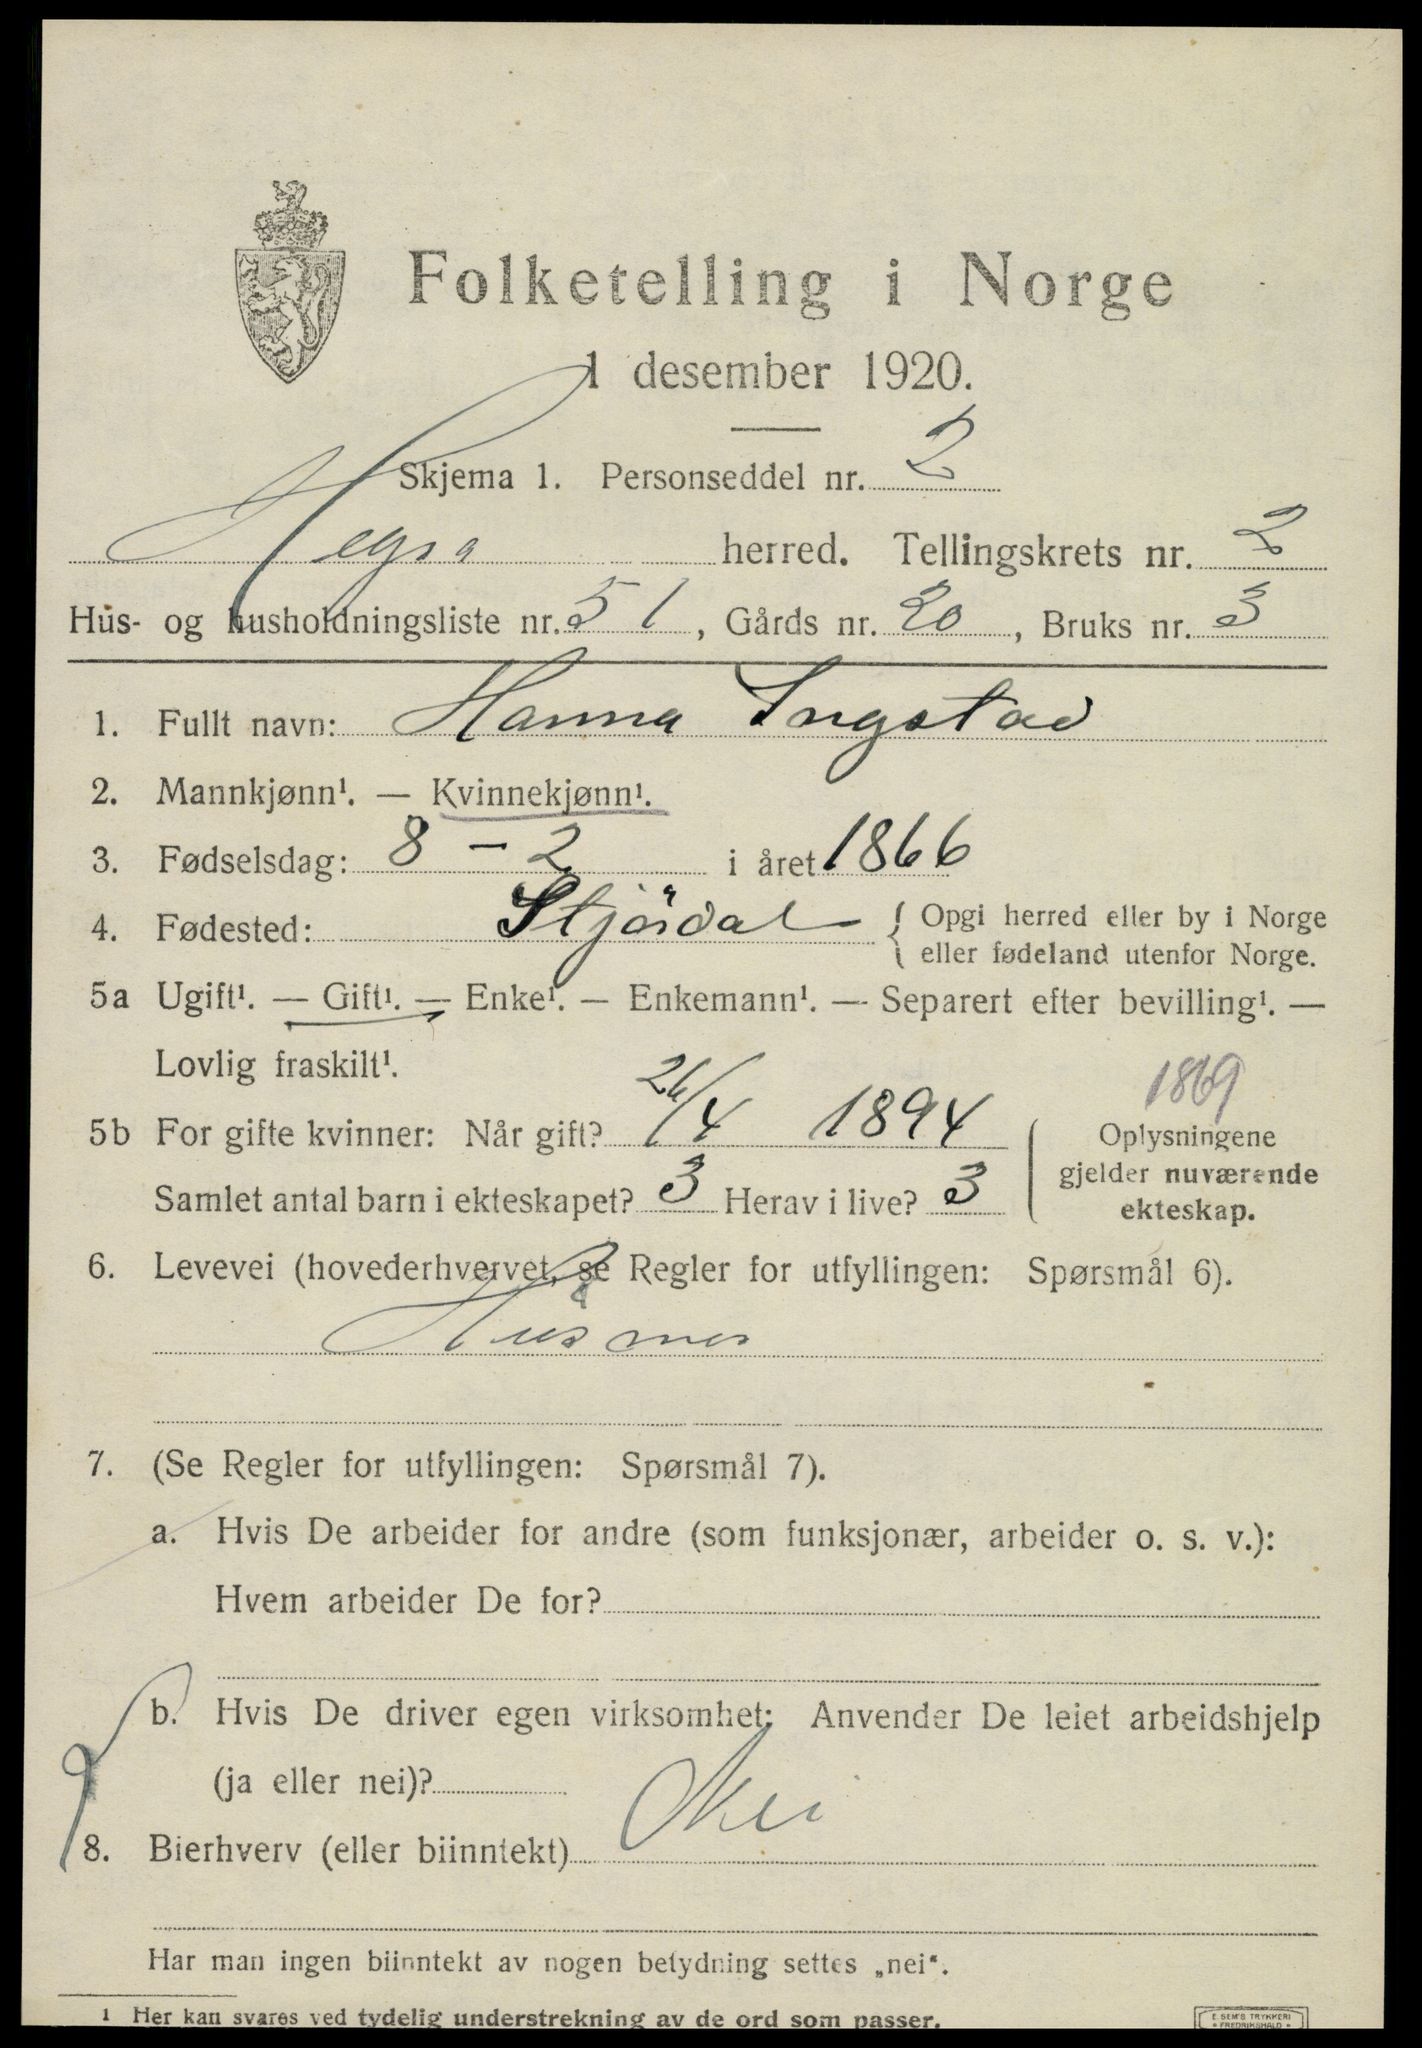 Folketelling i Norge
1 desember 1920.
Skjema 1. Personseddel nr. 2
Hegra herred. Tellingskrets nr. 2
Hus- og husholdningsliste nr. 51, Gårds nr. 20, Bruks nr. 3
1. Fullt navn: Hanna Ingstad
2. Mannkjønn¹. — Kvinnekjønn¹.
3. Fødselsdag: 8 - 2 i året 1866
4. Fødested: Stjördal { Opgi herred eller by i Norge
eller fødeland utenfor Norge.
5a Ugift¹. — Gift¹. — Enke¹. — Enkemann¹. — Separert efter bevilling¹. —
Lovlig fraskilt¹.
1869
5b For gifte kvinner: Når gift? 26/4 1894
Samlet antal barn i ekteskapet? 3 Herav i live? 3
Oplysningene
gjelder nuværende
ekteskap.
6. Levevei (hovederhvervet, se Regler for utfyllingen: Spørsmål 6).
Husmor
7. (Se Regler for utfyllingen: Spørsmål 7).
a. Hvis De arbeider for andre (som funksjonær, arbeider o. s. v.):
Hvem arbeider De for?
b. Hvis De driver egen virksomhet: Anvender De leiet arbeidshjelp
(ja eller nei)?
8. Bierhverv (eller biinntekt) Nei
Har man ingen biinntekt av nogen betydning settes „nei“.
1 Her kan svares ved tydelig understrekning av de ord som passer.
E. SEM'S TRYKKERI
* FREDRIKSHALD *